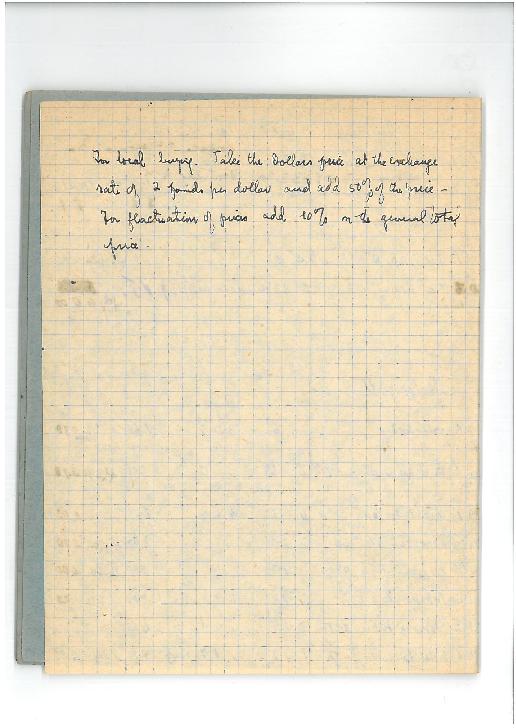 For local buying. Take the Dollars price at the exchange
rate of 2 pounds per dollar and add 50% of the price -
For fluctuation of prices add 10% on the general total
price.